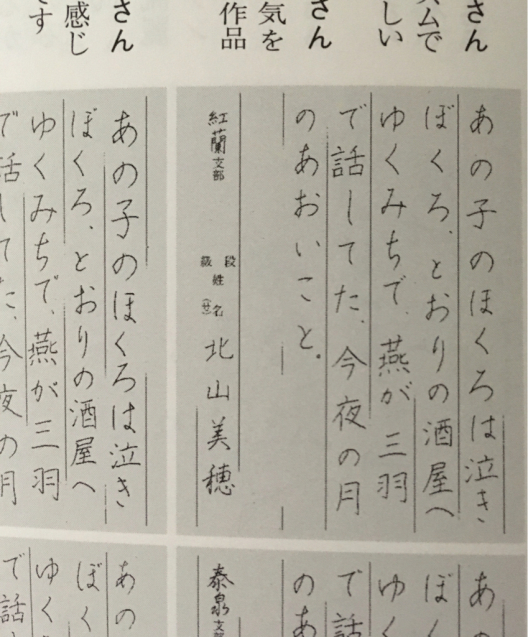 さん
ムで
しい
さん
気を
作品
さん
感じ
です
あの子のほくろは泣き
ぼくろ、とおりの酒屋へ
ゆくみちで、燕が三羽
で話してた、今夜の月
のあおいこと。
紅蘭支部 段級 姓名 (せ) 北山美穂
あの子のほくろは泣き
ぼくろ、とおりの酒屋へ
ゆくみちで、燕が三羽
で話してた、今夜の月
あ
ぼ
ゆ
で話
のあ
泰泉支
あの
ぼく
ゆく
で話